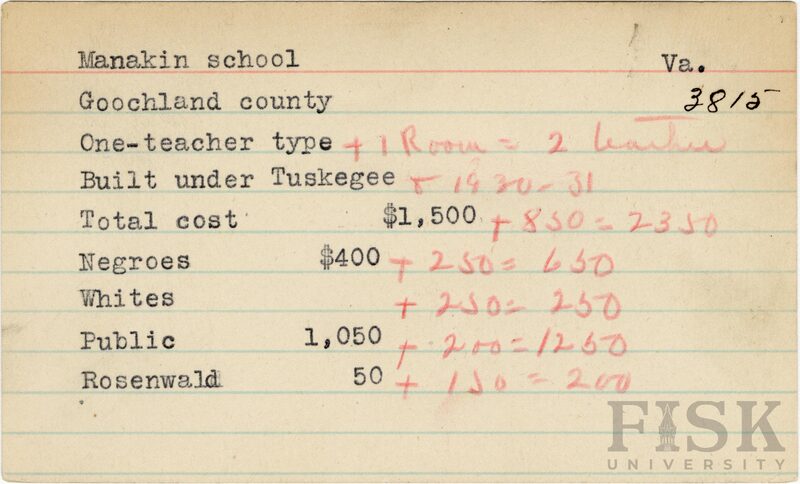 Manakin school Va.
Goochland county 3815
One-teacher type + 1 Room = 2 teacher
Built under Tuskegee & 1930-31
Total cost $1,500 + 850 = 2350
Negroes $400 + 250 = 650
Whites + 250 = 250
Public 1,050 + 200 = 1250
Rosenwald 50 + 150 = 200
FISK
UNIVERSITY